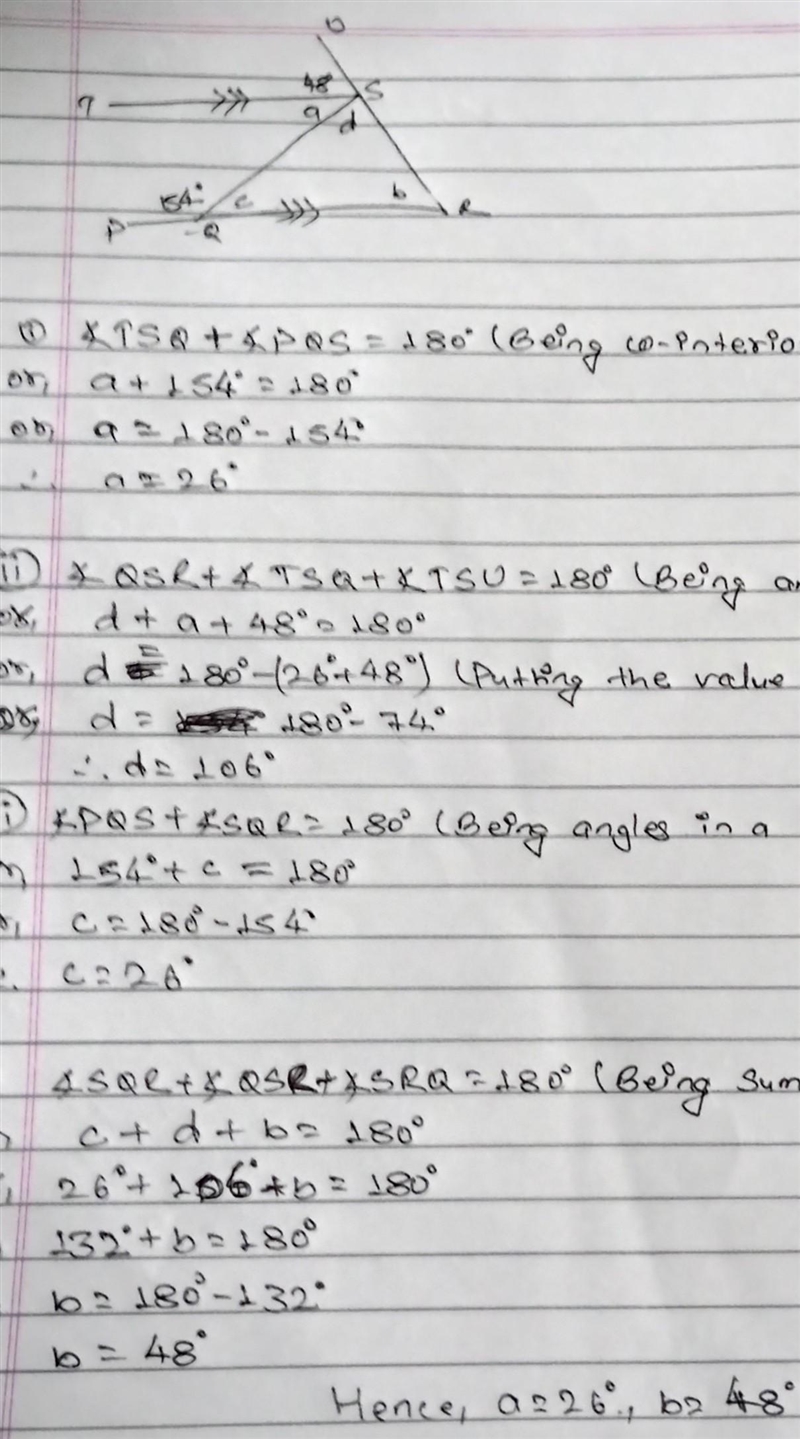 U
48° S
T a d
54° c b R
P Q
i) ∡TSQ + ∡PQS = 180° (Being co-interio
or, a + 154° = 180°
or, a = 180° - 154°
∴ a = 26°
ii) ∡QSR + ∡TSQ + ∡TSU = 180° (Being an
or, d + a + 48° = 180°
or, d = 180° - (26° + 48°) (Putting the value
or, d = 180° - 74°
∴ d = 106°
i) ∡PQS + ∡SQR = 180° (Being angles in a
r, 154° + c = 180°
r, c = 180° - 154°
∴ c = 26°
∡SQR + ∡QSR + ∡SRQ = 180° (Being sum
c + d + b = 180°
26° + 106° + b = 180°
132° + b = 180°
b = 180° - 132°
b = 48°
Hence, a = 26°, b = 48°